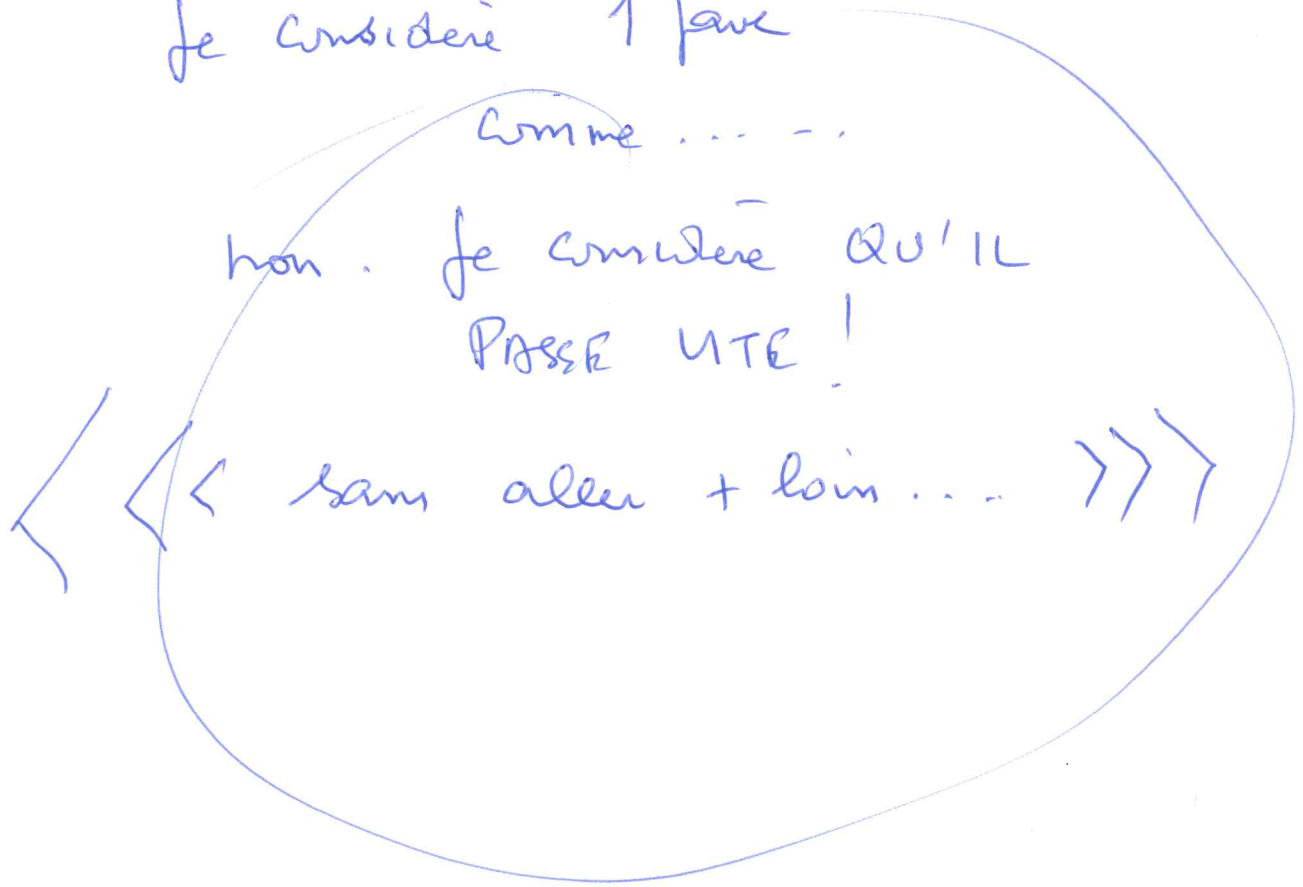 Je considère 1
comme ..... - .
non. Je considère QU'IL
PASSE VITE !
<<< sans aller + loin.... >>>